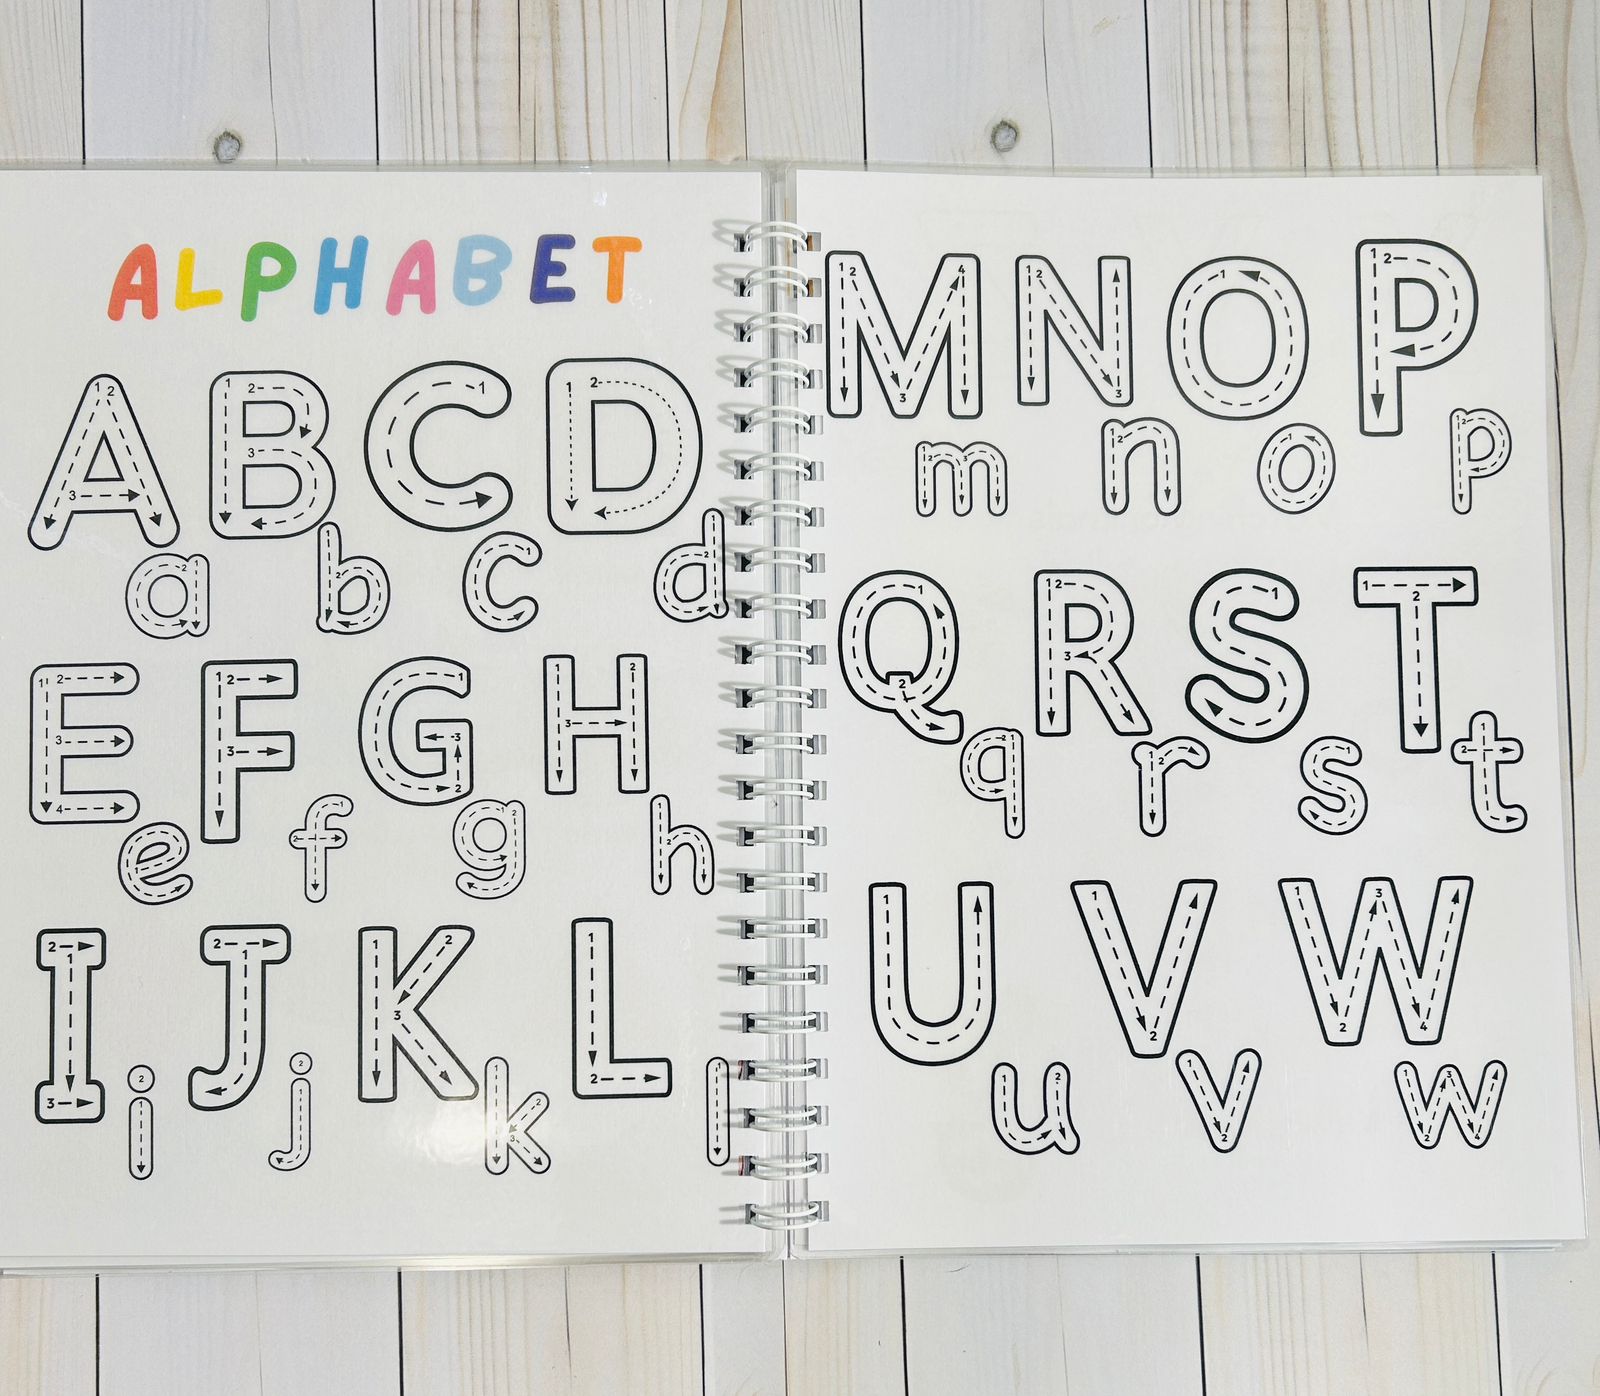 ALPHABET
A B C D
a b c d
E F G H
e f g h
I J K L
i j k l
M N O P
m n o p
Q R S T
q r s t
U V W
u v w